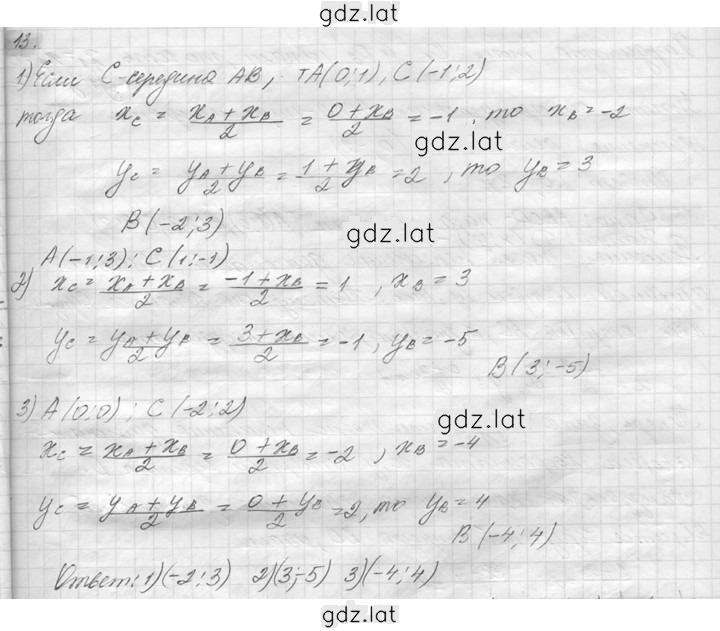 gdz.lat
13.
1) Если C-середина AB, т A(0;1), C(-1;2)
тогда x_C = (x_A + x_B)/2 = (0 + x_B)/2 = -1, то x_B = -2
gdz.lat
y_C = (y_A + y_B)/2 = (1 + y_B)/2 = 2, то y_B = 3
B(-2;3)
gdz.lat
A(-1;3); C(1;-1)
2) x_C = (x_A + x_B)/2 = (-1 + x_B)/2 = 1, x_B = 3
y_C = (y_A + y_B)/2 = (3 + x_B)/2 = -1, y_B = -5
B(3;-5)
3) A(0;0); C(-2;2)
gdz.lat
x_C = (x_A + x_B)/2 = (0 + x_B)/2 = -2, x_B = -4
y_C = (y_A + y_B)/2 = (0 + y_B)/2 = 2, то y_B = 4
B(-4;4)
Ответ: 1)(-2;3) 2)(3;-5) 3)(-4;4)
gdz.lat